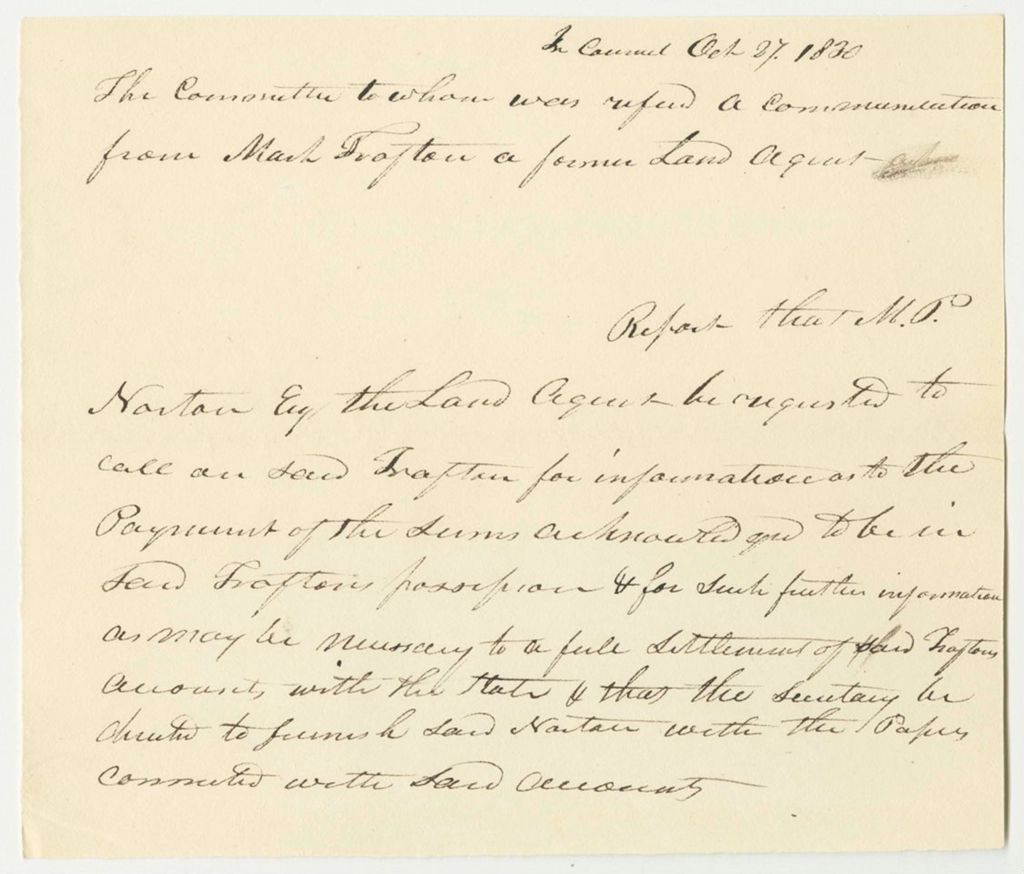 In Council Oct 27. 1830
The Committee to whom was refered a communication
from Mark Trafton a former Land Agent
Report that M. P.
Norton Esq the Land Agent be requested to
call on said Trafton for information as to the
Payment of the sums acknowledged to be in
said Traftons possession & for such further information
as may be necessary to a full settlement of said Traftons
accounts with the State & that the Secretary be
directed to furnish said Norton with the Papers
connected with said accounts